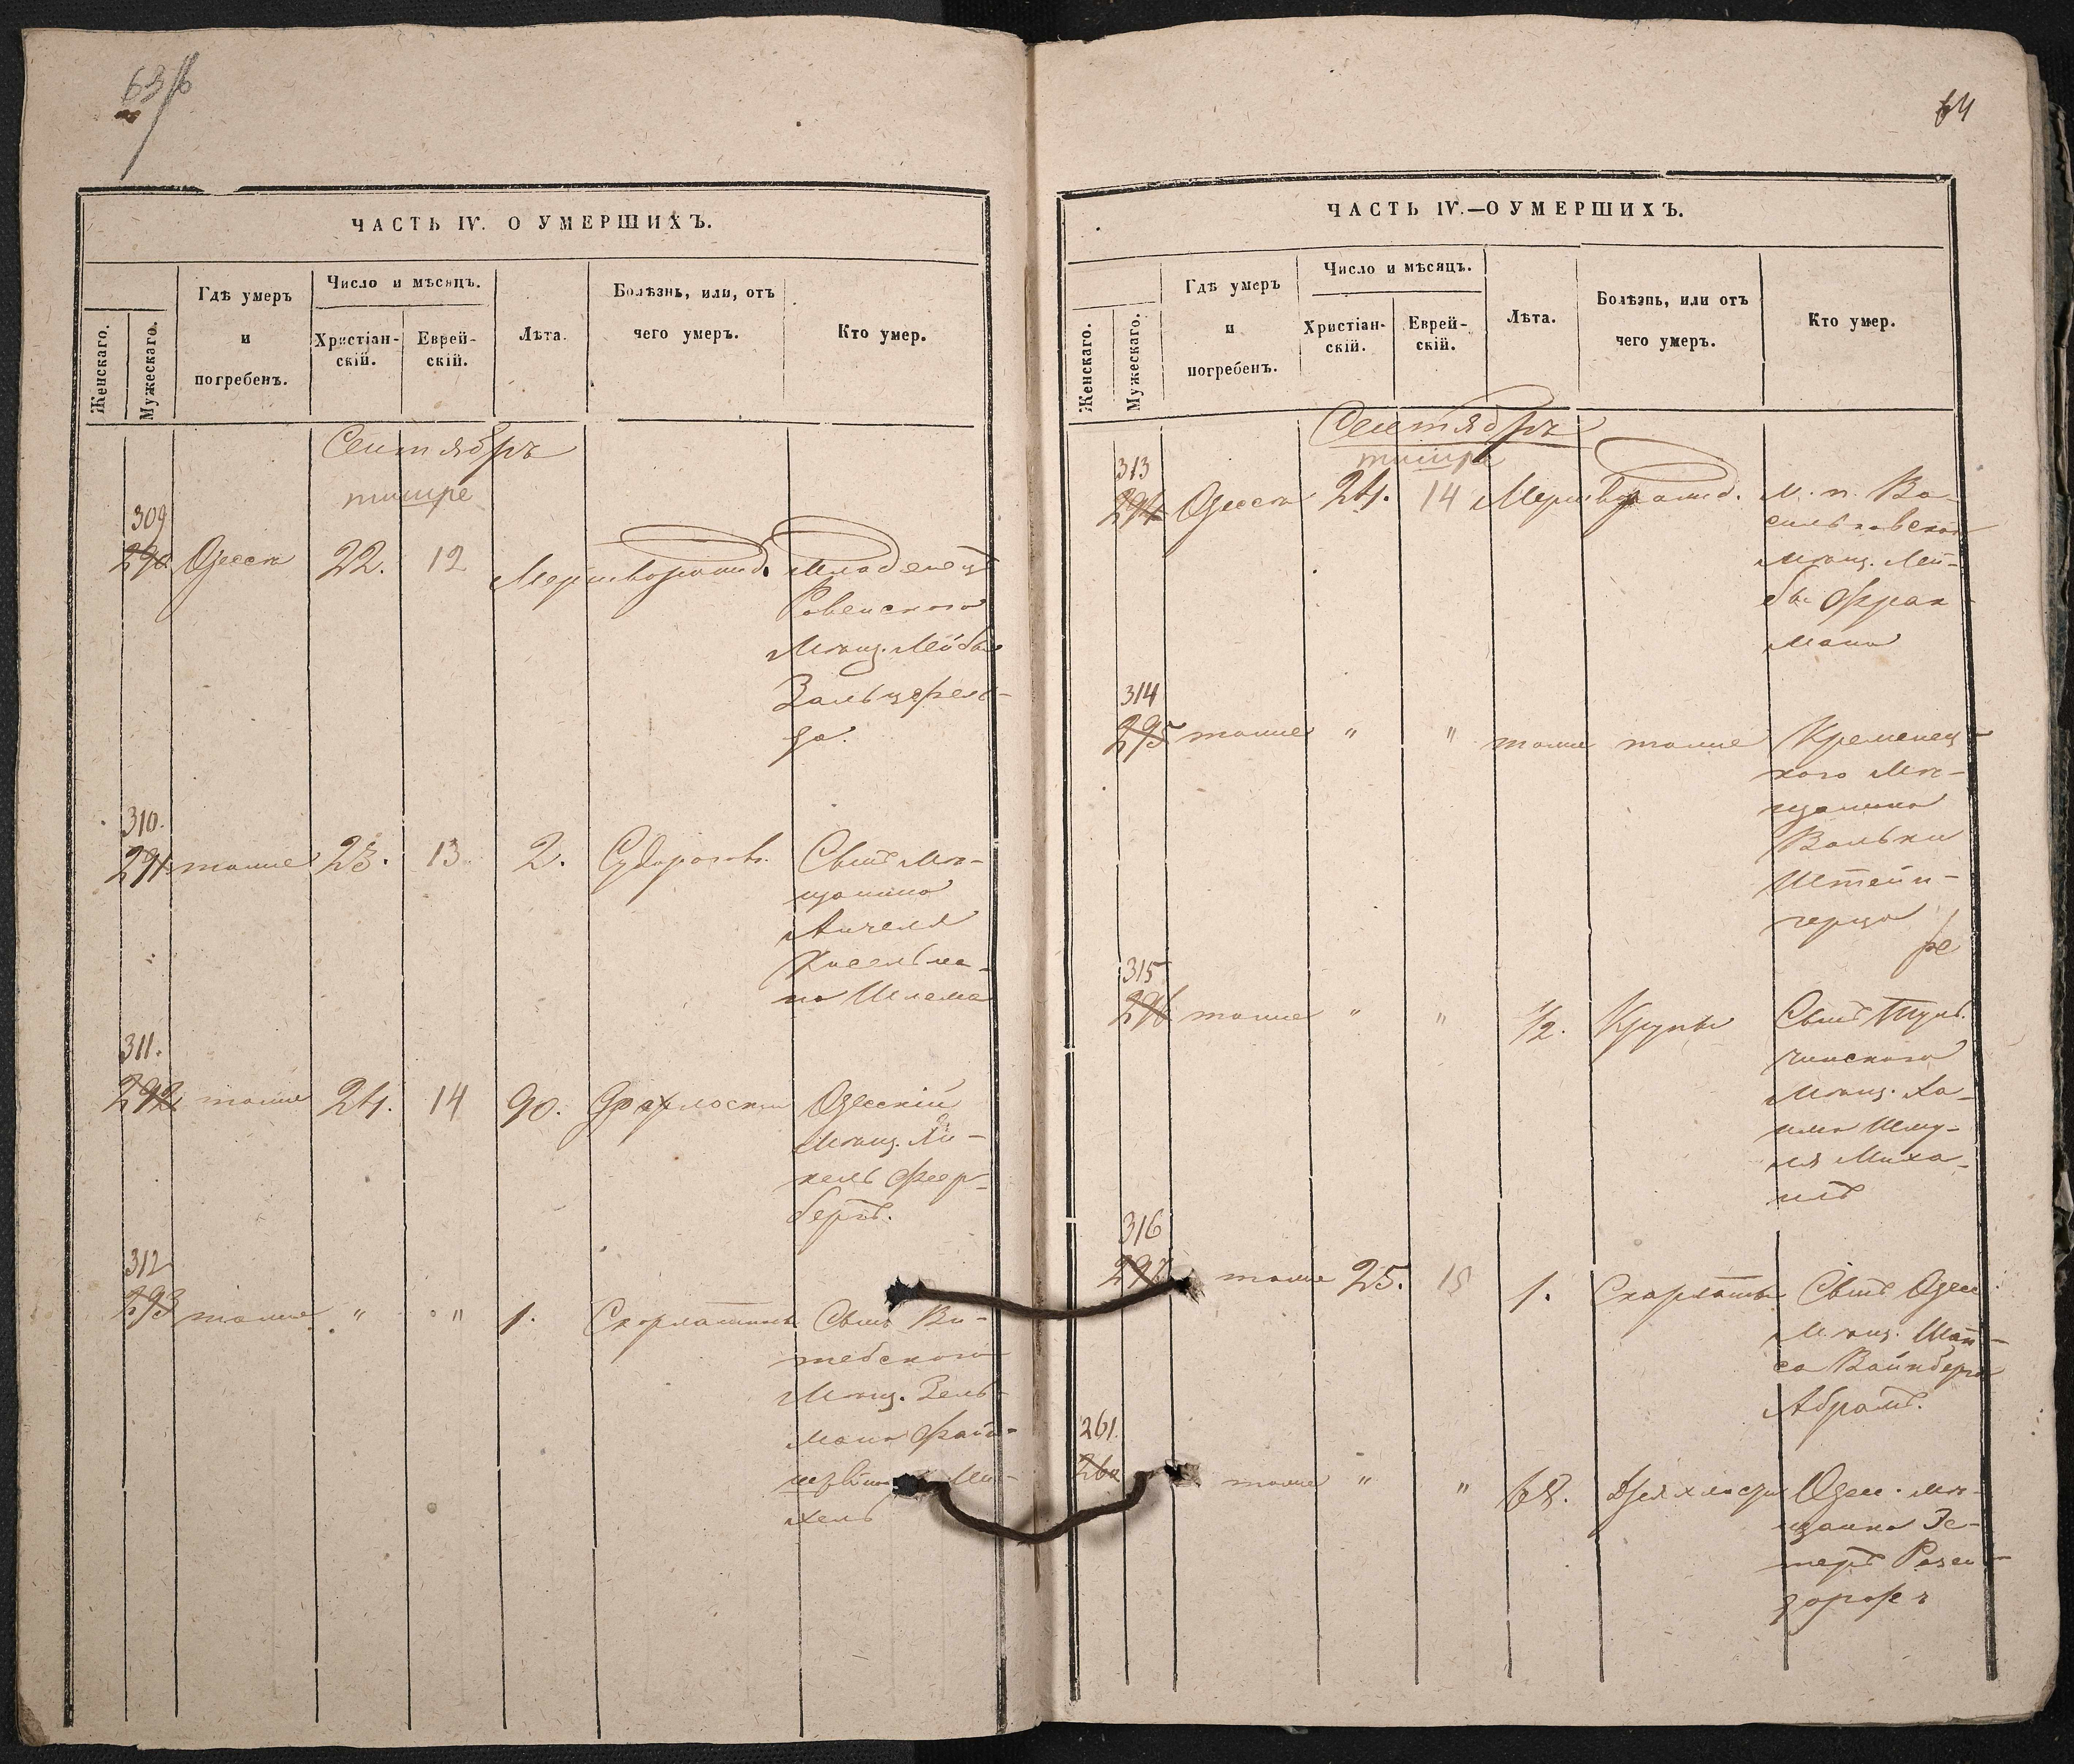 63/б
ЧАСТЬ IV. О УМЕРШИХЪ.
Женскаго.
Мужескаго.
Гдѣ умеръ
и
погребенъ.
Число и мѣсяцъ.
Христіан-
скій.
Еврей-
скій.
Лѣта.
Болѣзнь, или, отъ
чего умеръ.
Кто умер.
Сентябрь
тишре
309
290 Одесса 22. 12 Мертворожд. Младенецъ
Ровенского
Мѣщ. Лейбы
Зальцфель-
да.
310.
291 тоже 23. 13. 2. Судорогов. Сынъ Мѣ-
щанина
Анчеля
Кисельма-
на Шлема
311.
292 тоже 24. 14 90. Дряхлости Одесскій
Мѣщ. Ми-
хель Фер-
беръ.
312
293 тоже " " 1. Скорлатины Сынъ Ви-
тебского
Мѣщ. Зель-
мана Фай-
Ми-
хель
64
ЧАСТЬ IV.—О УМЕРШИХЪ.
Женскаго.
Мужескаго.
Гдѣ умеръ
и
погребенъ.
Число и мѣсяцъ.
Христіан-
скій.
Еврей-
скій.
Лѣта.
Болѣзнь, или отъ
чего умеръ.
Кто умер.
Сентябрь
тишре
313
294 Одесса 24. 14 Мертворожд. М. п. Ва-
сильковского
Мѣщ. Лей-
бы Фрак-
мана
314
295 тоже " " тоже тоже Кременец-
кого Мѣ-
щанина
Вольки
Штейн-
герца
315
296 тоже " " 1/2. Крупы Сынъ Туль-
чинского
Мѣщ. Ха-
има Шму-
ля Миха-
илъ
316
297 тоже 25. 15 1. Скарлатин Сынъ Одес.
Мѣщ. Шай-
са Вайнберга
Абрамъ.
261.
260 тоже " " 68. Дряхлости Одес. мѣ-
щанка Эс-
теръ Розен-
дорфъ